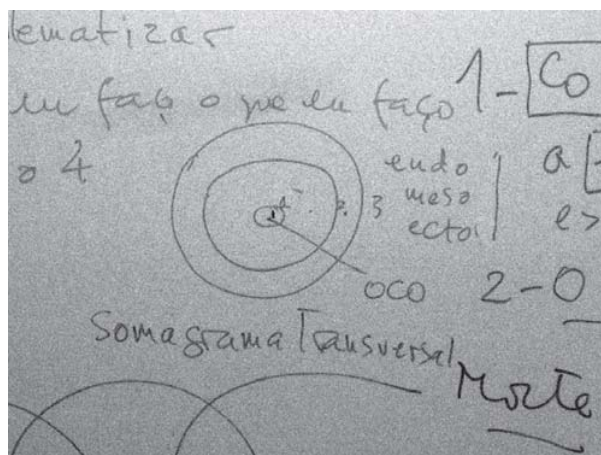 lematizar
eu faço o que eu faço 1- Co
o 4
1 2. 3 endo a
meso
ecto e
oco 2-O
Somagrama Transversal
Morte